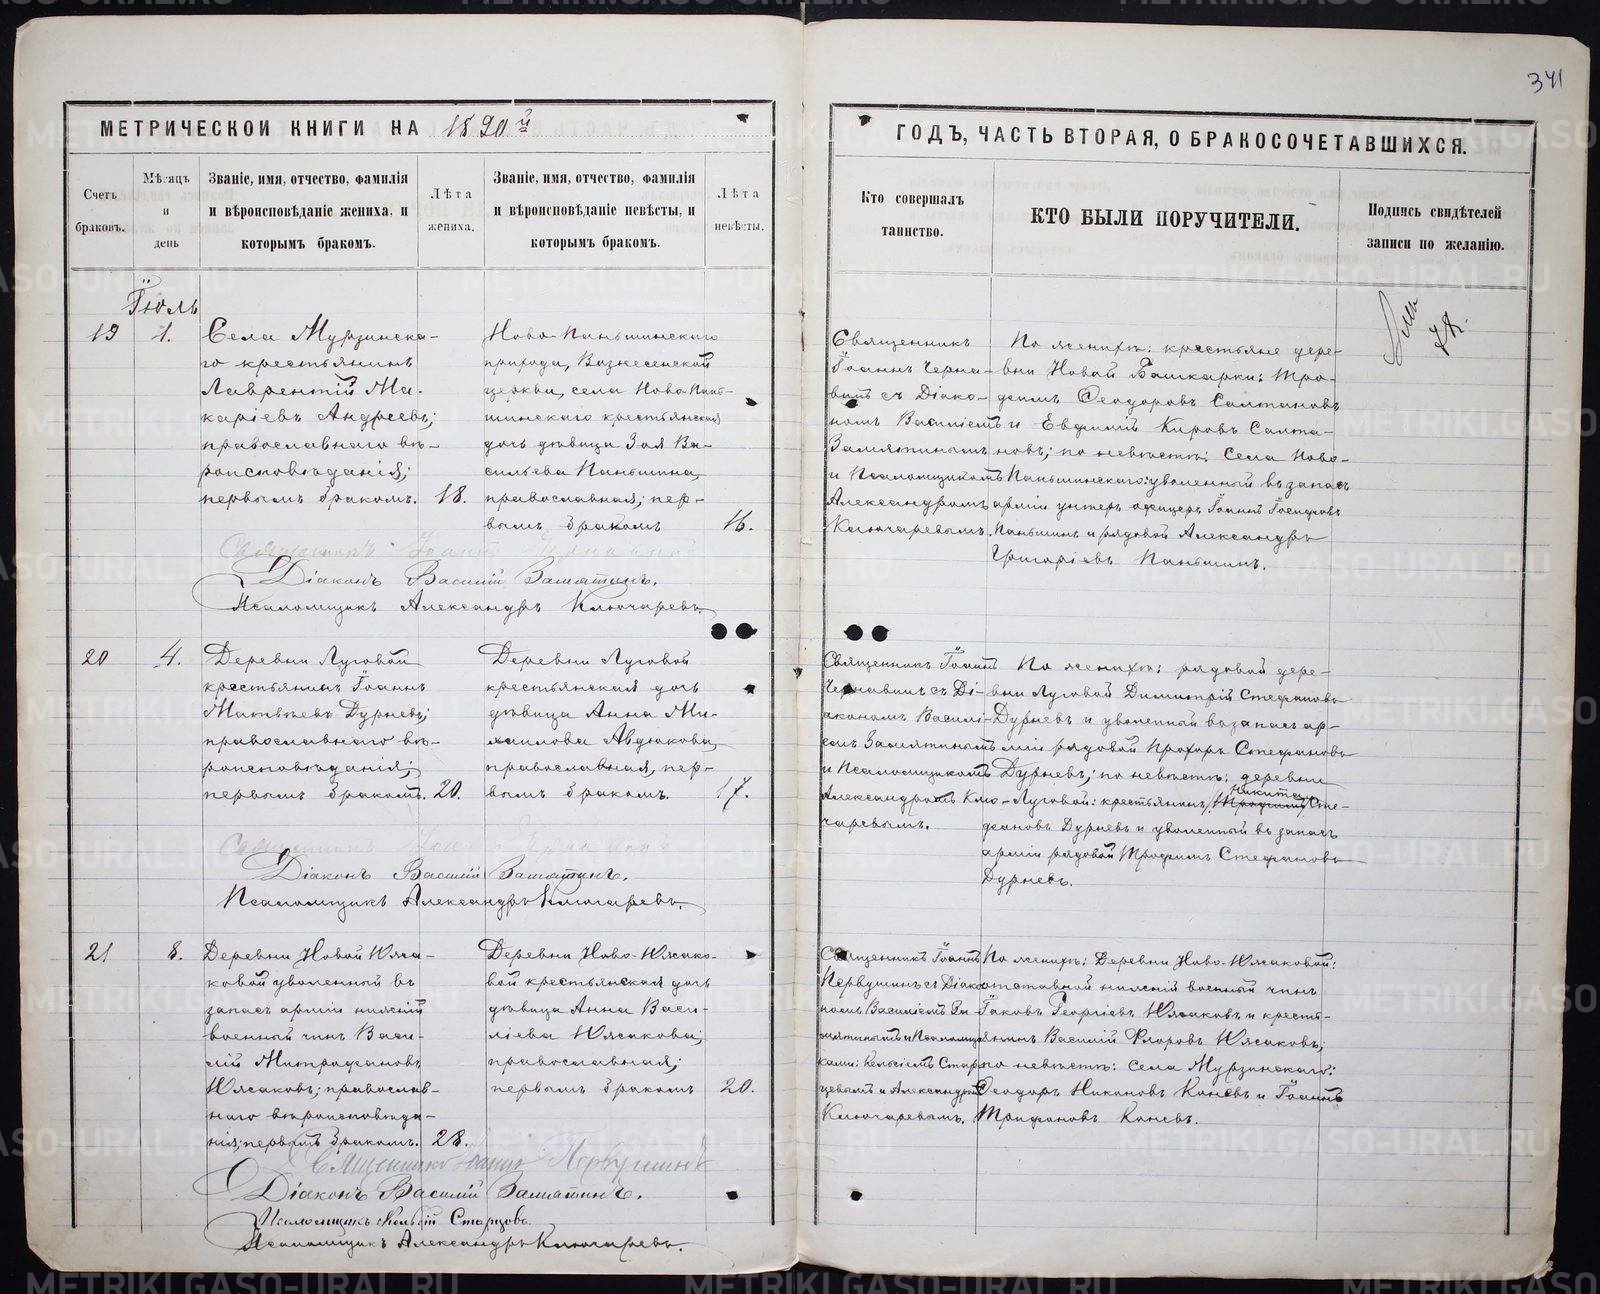 341
МЕТРИЧЕСКОЙ КНИГИ НА 1890й
ГОДЪ, ЧАСТЬ ВТОРАЯ, О БРАКОСОЧЕТАВШИХСЯ.
Счетъ
браковъ.
Мѣсяцъ
и
день
Званіе, имя, отчество, фамилія
и вѣроисповѣданіе жениха, и
которымъ бракомъ.
Лѣта
жениха.
Званіе, имя, отчество, фамилія
и вѣроисповѣданіе невѣсты, и
которымъ бракомъ.
Лѣта
невѣсты.
Кто совершалъ
таинство.
КТО БЫЛИ ПОРУЧИТЕЛИ.
Подпись свидѣтелей
записи по желанію.
Іюль
19
1.
Села Мурзинска-
го крестьянинъ
Лаврентій Ма-
каріевъ Андреевъ;
православнаго вѣ-
роисповѣданія;
первымъ бракомъ.
18.
Ново-Паньшинскаго
прихода, Вознесенской
церкви, села Ново-Пань-
шинскаго крестьянская
дочь дѣвица Зоя Ва-
сильева Паньшина,
православная; пер-
вымъ бракомъ
16.
Священникъ
Іоаннъ Черна-
винъ съ Діако-
номъ Василіемъ
Замятинымъ
и Псаломщикомъ
Александромъ
Ключаревымъ.
По женихѣ: крестьяне дере-
вни Новой Башкарки: Тро-
фимъ Ѳеодоровъ Салтановъ
и Евфимій Кировъ Салта-
новъ; по невѣстѣ: Села Ново-
Паньшинскаго: уволенный въ запасъ
арміи унтеръ офицеръ Іоаннъ Іосифовъ
Паньшинъ и рядовой Александръ
Григоріевъ Паньшинъ.
Священникъ Іоаннъ Чернавинъ
Діаконъ Василій Замятинъ.
Псаломщикъ Александръ Ключаревъ.
20
4.
Деревни Луговой
крестьянинъ Іоаннъ
Матвѣевъ Дурневъ;
православнаго вѣ-
роисповѣданія;
первымъ бракомъ.
20.
Деревни Луговой
крестьянская дочь
дѣвица Анна Ми-
хаилова Авдюкова,
православная, пер-
вымъ бракомъ.
17.
Священникъ Іоаннъ
Чернавинъ съ Ді-
акономъ Василі-
емъ Замятинымъ
и Псаломщикомъ
Александромъ Клю-
чаревымъ.
По женихѣ: рядовой дере-
вни Луговой Димитрій Стефановъ
Дурневъ и уволенный въ запасъ ар-
міи рядовой Прохоръ Стефановъ
Дурневъ; по невѣстѣ: деревни
Никита
Луговой: крестьянинъ Трофимъ Сте-
фановъ Дурневъ и уволенный въ запасъ
арміи рядовой Трофимъ Стефановъ
Дурневъ.
Священникъ Іоаннъ Чернавинъ
Діаконъ Василій Замятинъ.
Псаломщикъ Александръ Ключаревъ.
21
8.
Деревни Новой Южа-
ковой уволенный въ
запасъ арміи нижній
военный чинъ Васи-
лій Митрофановъ
Южаковъ; православ-
наго вѣроисповѣда-
нія; первымъ бракомъ.
28.
Деревни Ново-Южако-
вой крестьянская дочь
дѣвица Анна Васи-
ліева Южакова;
православная;
первымъ бракомъ
20.
Священникъ Іоаннъ
Первушинъ съ Діако-
номъ Василіемъ За-
мятинымъ и Псаломщи-
ками: Кельсіемъ Стар-
цевымъ и Александромъ
Ключаревымъ.
По женихѣ: Деревни Ново-Южаковой:
отставной нижній военный чинъ
Іаковъ Георгіевъ Южаковъ и кресть-
янинъ Василій Флоровъ Южаковъ;
по невѣстѣ: села Мурзинскаго:
Ѳеодоръ Никоновъ Каневъ и Іоаннъ
Трифоновъ Каневъ.
Священникъ Іоаннъ Первушинъ
Діаконъ Василій Замятинъ.
Псаломщикъ Кельсій Старцовъ
Псаломщикъ Александръ Ключаревъ.
METRIKI.GASO-URAL.RU